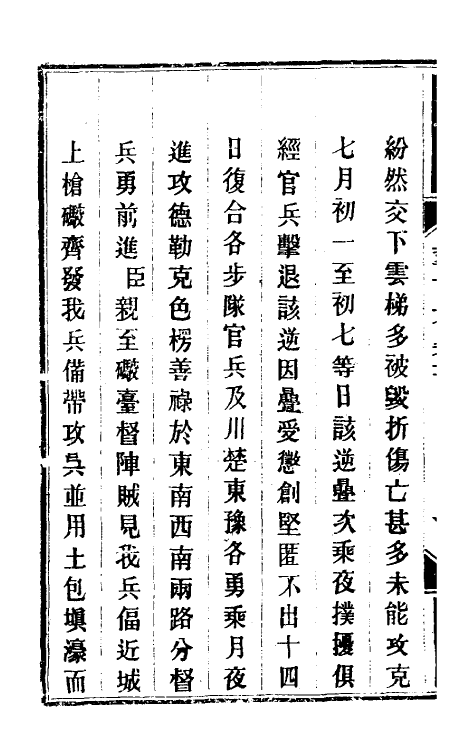 紛然交下雲梯多被毀折傷亡甚多未能攻克
七月初一至初七等日該逆疊次乘夜撲擾俱
經官兵擊退該逆因疊受懲創堅匿不出十四
日復合各步隊官兵及川楚東豫各勇乘月夜
進攻德勒克色楞善祿於東南西南兩路分督
兵勇前進臣親至礮臺督陣賊見我兵偪近城
上槍礮齊發我兵備帶攻具並用土包塡濠而